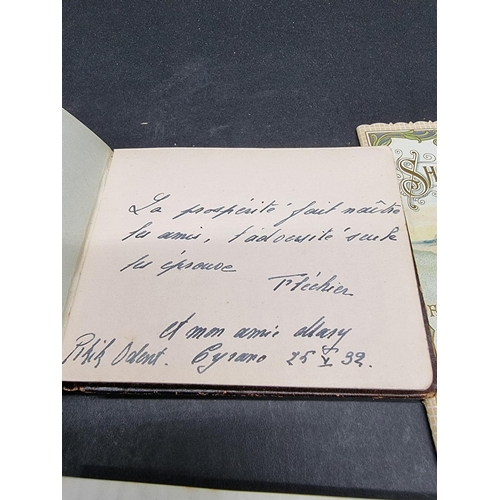 La prospérité fait naître
les amis, l'adversité seule
les éprouve
Fléchier
et mon amie Mary
Odent. Cyrano 25 X 32.
SH